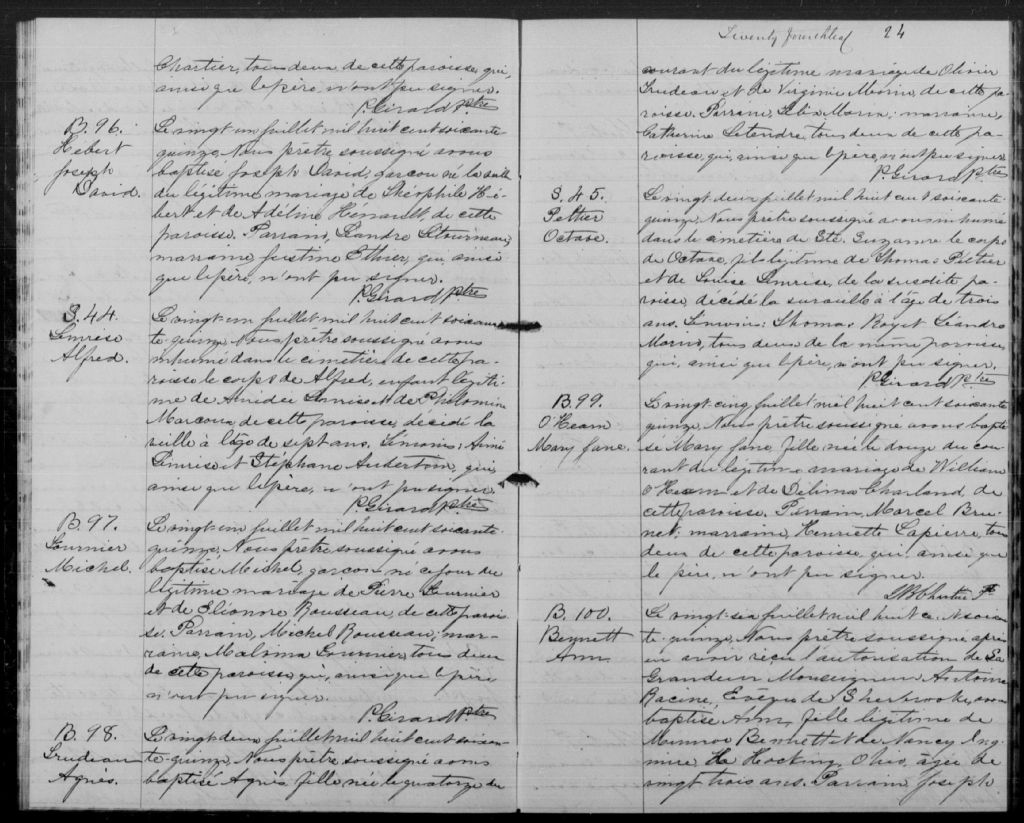 Chartier, tous deux de cette paroisse, qui,
ainsi que le père, n'ont pu signer.
P. Girard Ptre
B. 96.
Hebert
Joseph
David.
Le vingt-un juillet mil huit cent soixante-
quinze, Nous prêtre soussigné avons
baptisé Joseph David, garçon né la veille
du légitime mariage de Théophile Hé-
bert et de Adéline Henault, de cette
paroisse. Parrain, Léandre Létourneau,
marraine Justine Ethier, qui, ainsi
que le père, n'ont pu signer.
P. Girard Ptre
S. 44.
Alfred.
Le vingt-un juillet mil huit cent soixan-
te-quinze, Nous prêtre soussigné avons
inhumé dans le cimetière de cette pa-
roisse le corps de Alfred, enfant légiti-
me de Amédée et de Philomine
Marcoux de cette paroisse, décédé la
veille à l'âge de sept ans. Témoins: Aimé
et Stéphane qui,
ainsi que le père, n'ont pu signer.
P. Girard Ptre
B. 97.
Fournier
Michel.
Le vingt-un juillet mil huit cent soixante-
quinze, Nous prêtre soussigné avons
baptisé Michel, garçon né ce jour du
légitime mariage de Pierre Fournier
et de Eléonore Rousseau, de cette parois-
se. Parrain, Michel Rousseau, mar-
raine, Fournier, tous deux
de cette paroisse, qui, ainsi que le père
n'ont pu signer.
P. Girard Ptre
B. 98.
Trudeau
Agnès.
Le vingt-deux juillet mil huit cent soixan-
te-quinze, Nous prêtre soussigné avons
baptisé Agnès, fille née le quatorze du
Twenty fourth leaf 24
courant du légitime mariage de Olivier
Trudeau et de Virginie Morin, de cette pa-
roisse. Parrain, Morin; marraine,
Catherine Letendre, tous deux de cette pa-
roisse, qui, ainsi que le père, n'ont pu signer
P. Girard Ptre
S. 45.
Peltier
Octave.
Le vingt-deux juillet mil huit cent soixante
quinze, Nous prêtre soussigné avons inhumé
dans le cimetière de Ste. Suzanne le corps
de Octave, fils légitime de Thomas Peltier
et de Louise de la susdite pa-
roisse, décédé la surveille à l'âge de trois
ans. Témoins: Thomas Léandre
Morin, tous deux de la même paroisse,
qui, ainsi que le père, n'ont pu signer.
P. Girard Ptre
B. 99.
O'Hearn
Mary Jane.
Le vingt-cinq juillet mil huit cent soixante
quinze, Nous prêtre soussigné avons bapti-
sé Mary Jane, fille née le douze du cou-
rant du légitime mariage de William
O'Hearn et de Délima Charland, de
cette paroisse. Parrain, Marcel Bru-
net; marraine, Henriette Lapierre, tous
deux de cette paroisse, qui, ainsi que
le père, n'ont pu signer.
Chartier Ptr
B. 100.
Bennett
Ann
Le vingt-six juillet mil huit cent soixan-
te-quinze, Nous prêtre soussigné après
en avoir reçu l'autorisation de Sa
Grandeur Monseigneur Antoine
Racine, Evêque de Sherbrooke, avons
baptisé Ann, fille légitime de
Munroe Bennett et de Nancy
de Hocking, Ohio, âgée de
vingt trois ans. Parrain Joseph